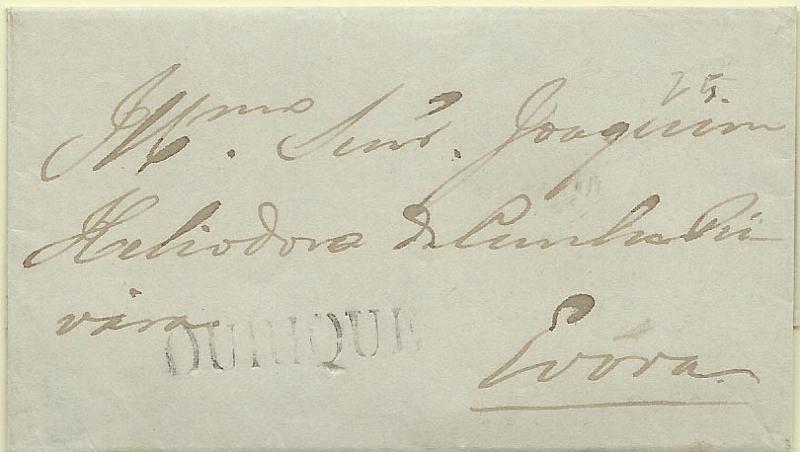 25.
Illmo. Snr. Joaquim
Heliodoro da Cunha Ri
vara
OURIQUE
Evóra